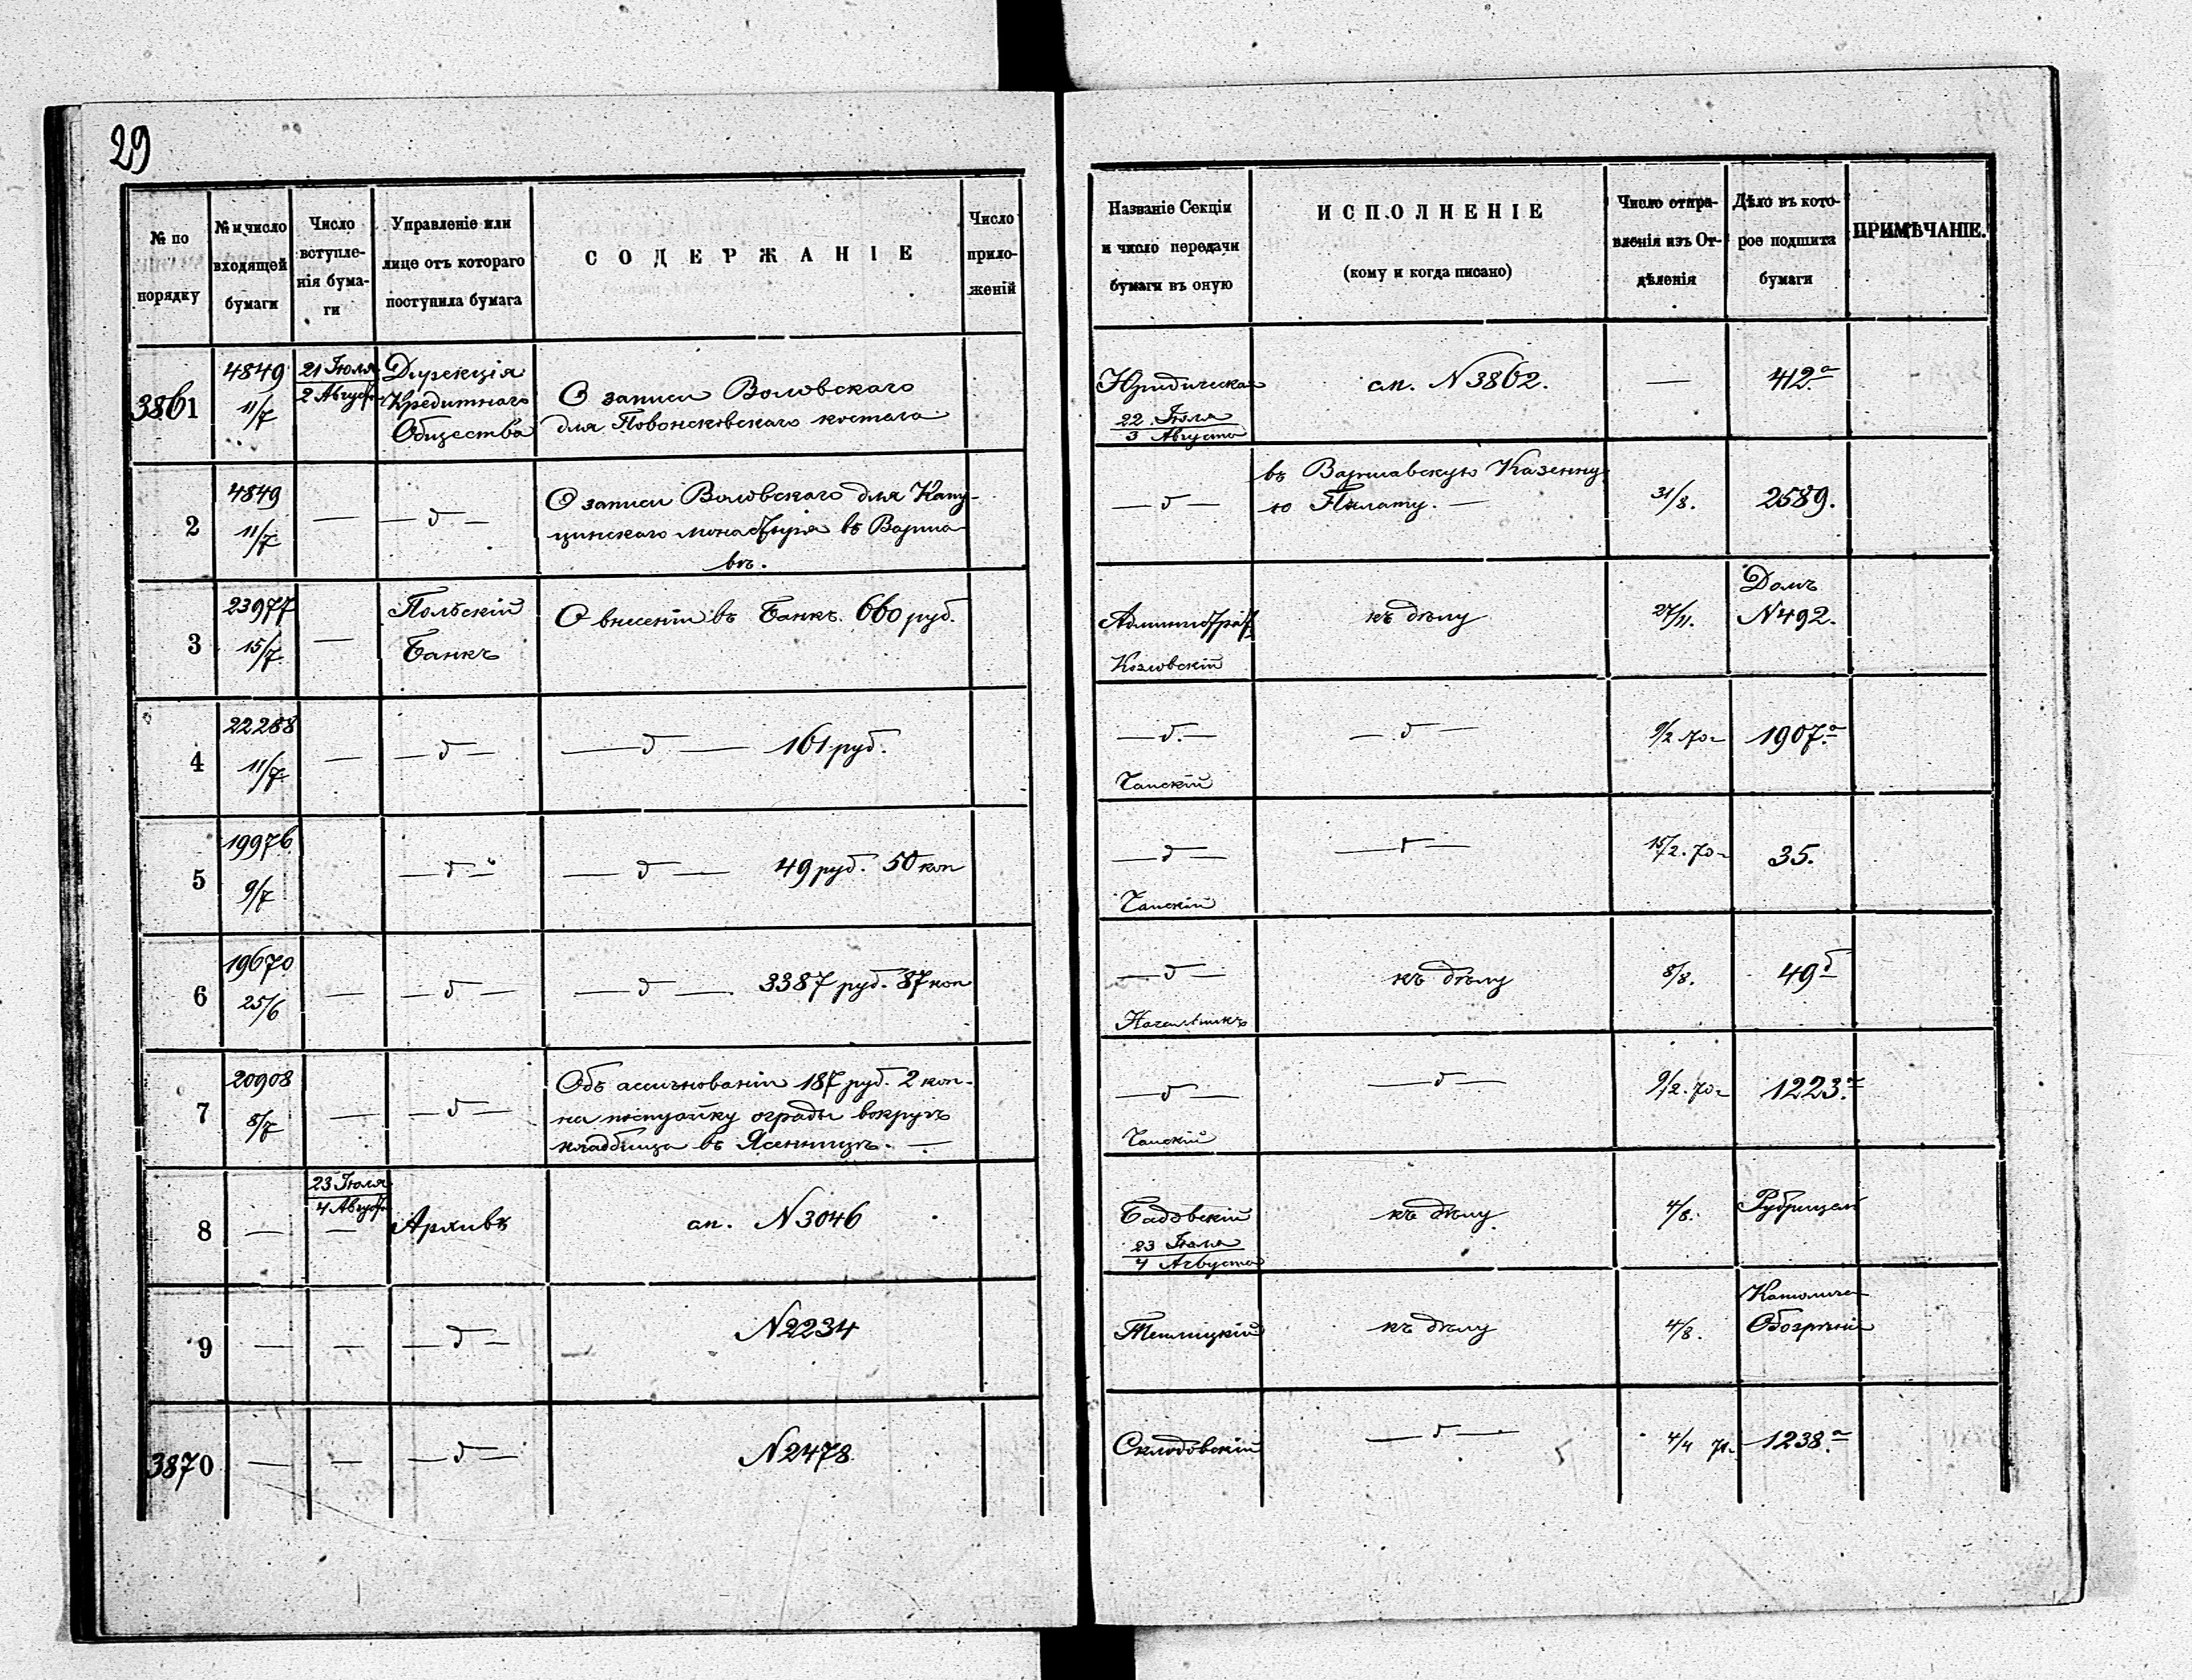 29
№ по порядку
№ и число входящей бумаги
Число вступленія бумаги
Управленіе или лице отъ котораго поступила бумага
СОДЕРЖАНІЕ
Число приложеній
Названіе Секціи и число передачи бумаги въ оную
ИСПОЛНЕНІЕ
(кому и когда писано)
Число отправленія изъ Отдѣленія
Дѣло въ которое подшита бумаги
ПРИМѢЧАНІЕ.
3861
4849
11/7
21 Іюля
2 Август
Дирекція
Кредитнаго
Общества
О записи Воловскаго
для Повонсковскаго костела
Юридическая
22 Іюля
3 Августа
сп. N 3862.
—
412 а
2
4849
11/7
—
— д —
О записи Воловскаго для Капу-
цинскаго монастыря въ Варша-
вѣ.
— д —
въ Варшавскую Казенну-
ю Палату. —
31/8.
2589.
3
23977
15/7
—
Польскій
Банкъ
О внесеніи въ Банкъ 660 руб.
Администрат
Козловскій
къ дѣлу
27/11.
Домъ
N 492.
4
22288
11/7
—
— д —
— д — 161 руб.
— д. —
Чапскій
— д —
9/2 70
1907. а
5
19976.
9/7
— д —
— д — 49 руб. 50 коп
— д —
Чапскій
— д —
15/2. 70
35.
6
19670
25/6
—
— д —
— д — 3387 руб. 87 коп
— д —
Начальникъ
къ дѣлу
8/8.
49 б
7
20908
8/7
—
— д —
Объ ассигнованіи 187 руб. 2 коп.
на постройку ограды вокругъ
кладбища въ Ясенницѣ. —
— д —
Чапскій
— д —
9/2. 70
1223. а
8
—
23 Іюля
4 Август
—
Архивъ
сп. N 3046
Садовскій
23 Іюля
4 Августа
къ дѣлу
4/8.
9
—
—
— д —
N 2234
къ дѣлу
4/8.
3870
—
—
— д —
N 2478
Склодовскій
— д —
4/4 71.
1238. а